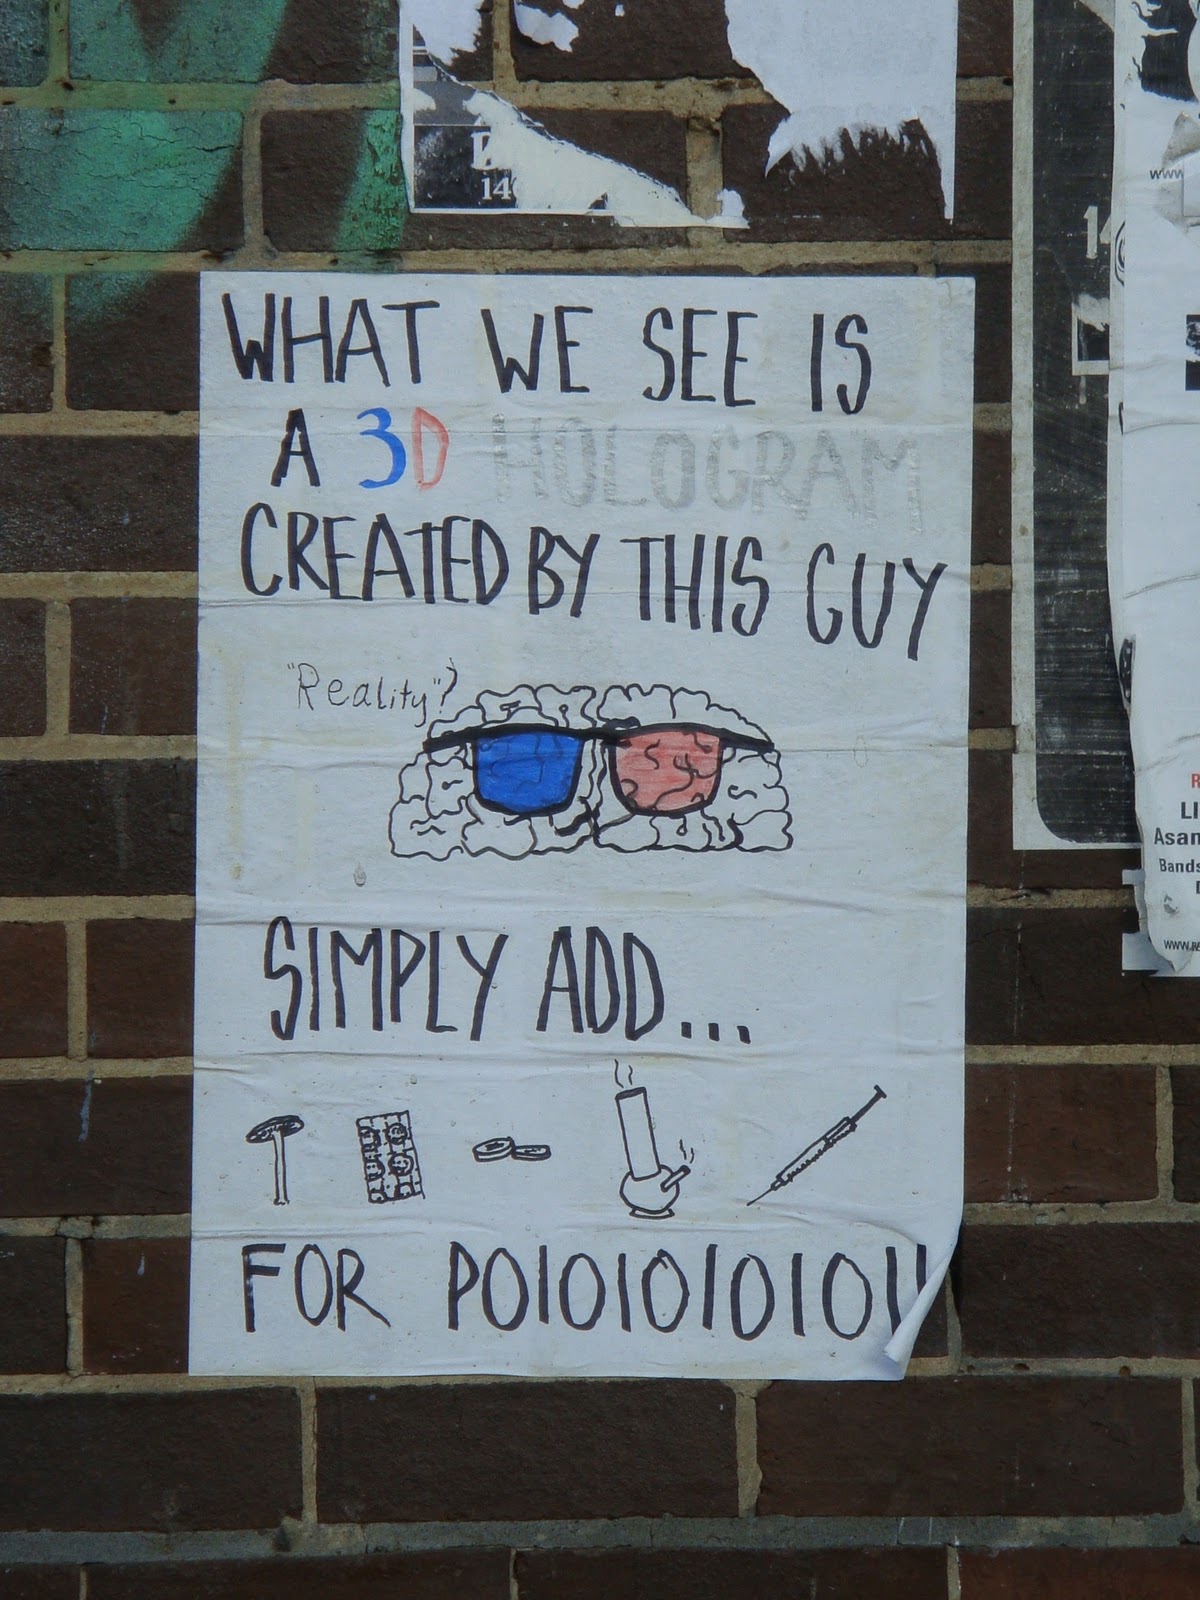 WHAT WE SEE IS
A 3D HOLOGRAM
CREATED BY THIS GUY
"Reality"?
SIMPLY ADD...
FOR POIOIOIOIOII
14
www
LI
Asan
Bands
www.